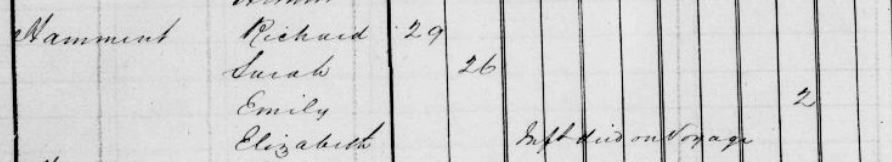 Hamment Richard 29
Sarah 26
Emily 2
Elizabeth Inft died on Voyage